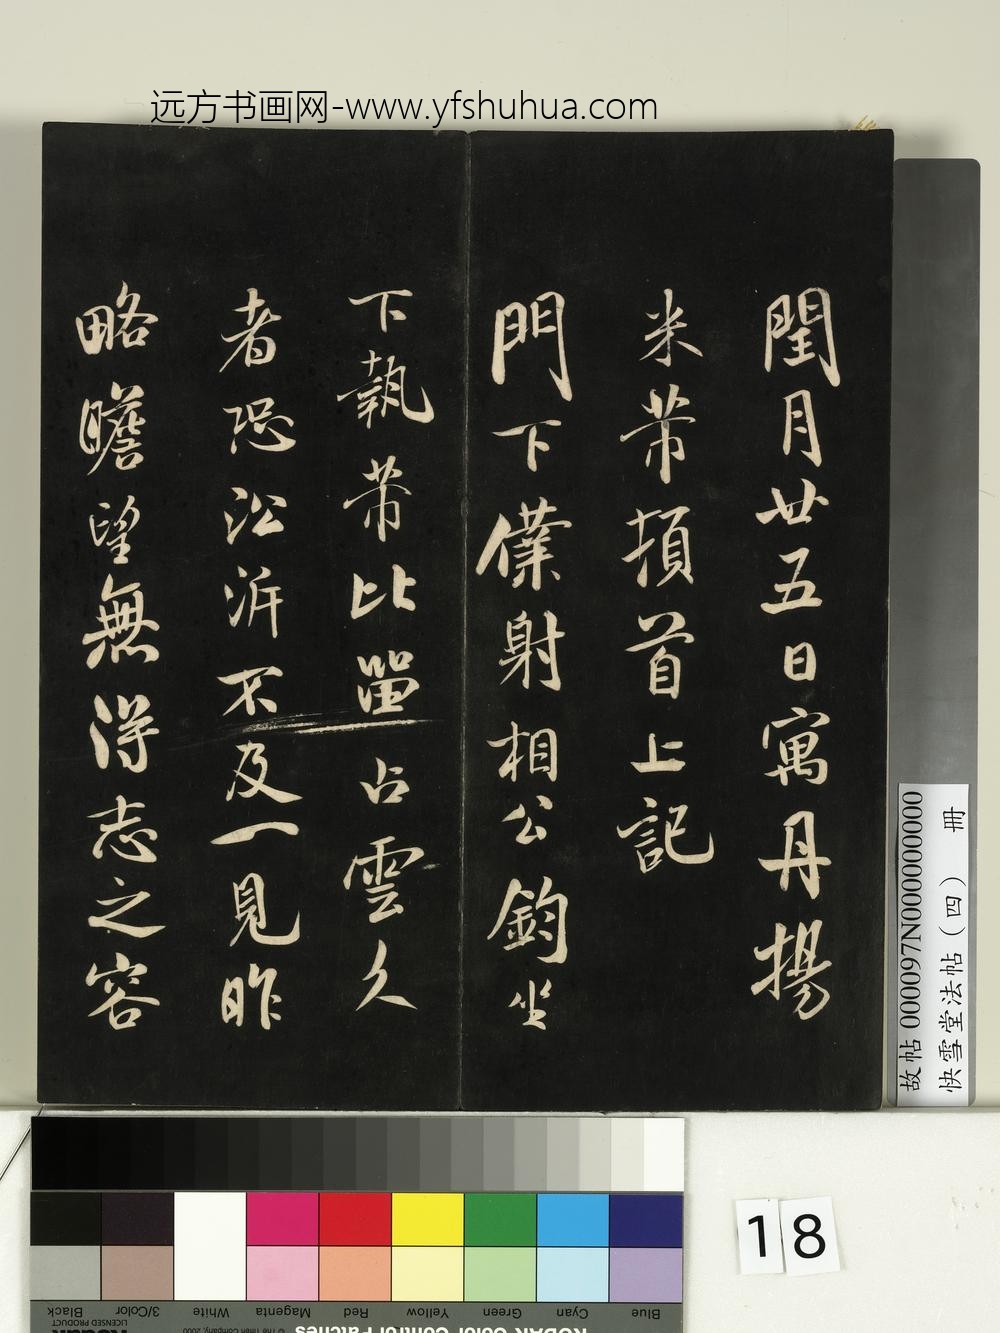 远方书画网-www.yfshuhua.com
閏月廿五日寓丹揚
米芾頓首上記
門下僕射相公鈞坐
下執芾比留占雲久
者恐沿泝不及一見昨
略瞻望無得志之容
故帖 000097N000000000
快雪堂法帖（四） 冊
18
Blue
Cyan
Green
Yellow
Red
Magenta
White
3/Color
Black
KODAK Color Control Patches
© The Tiffen Company, 2000
LICENSED PRODUCT